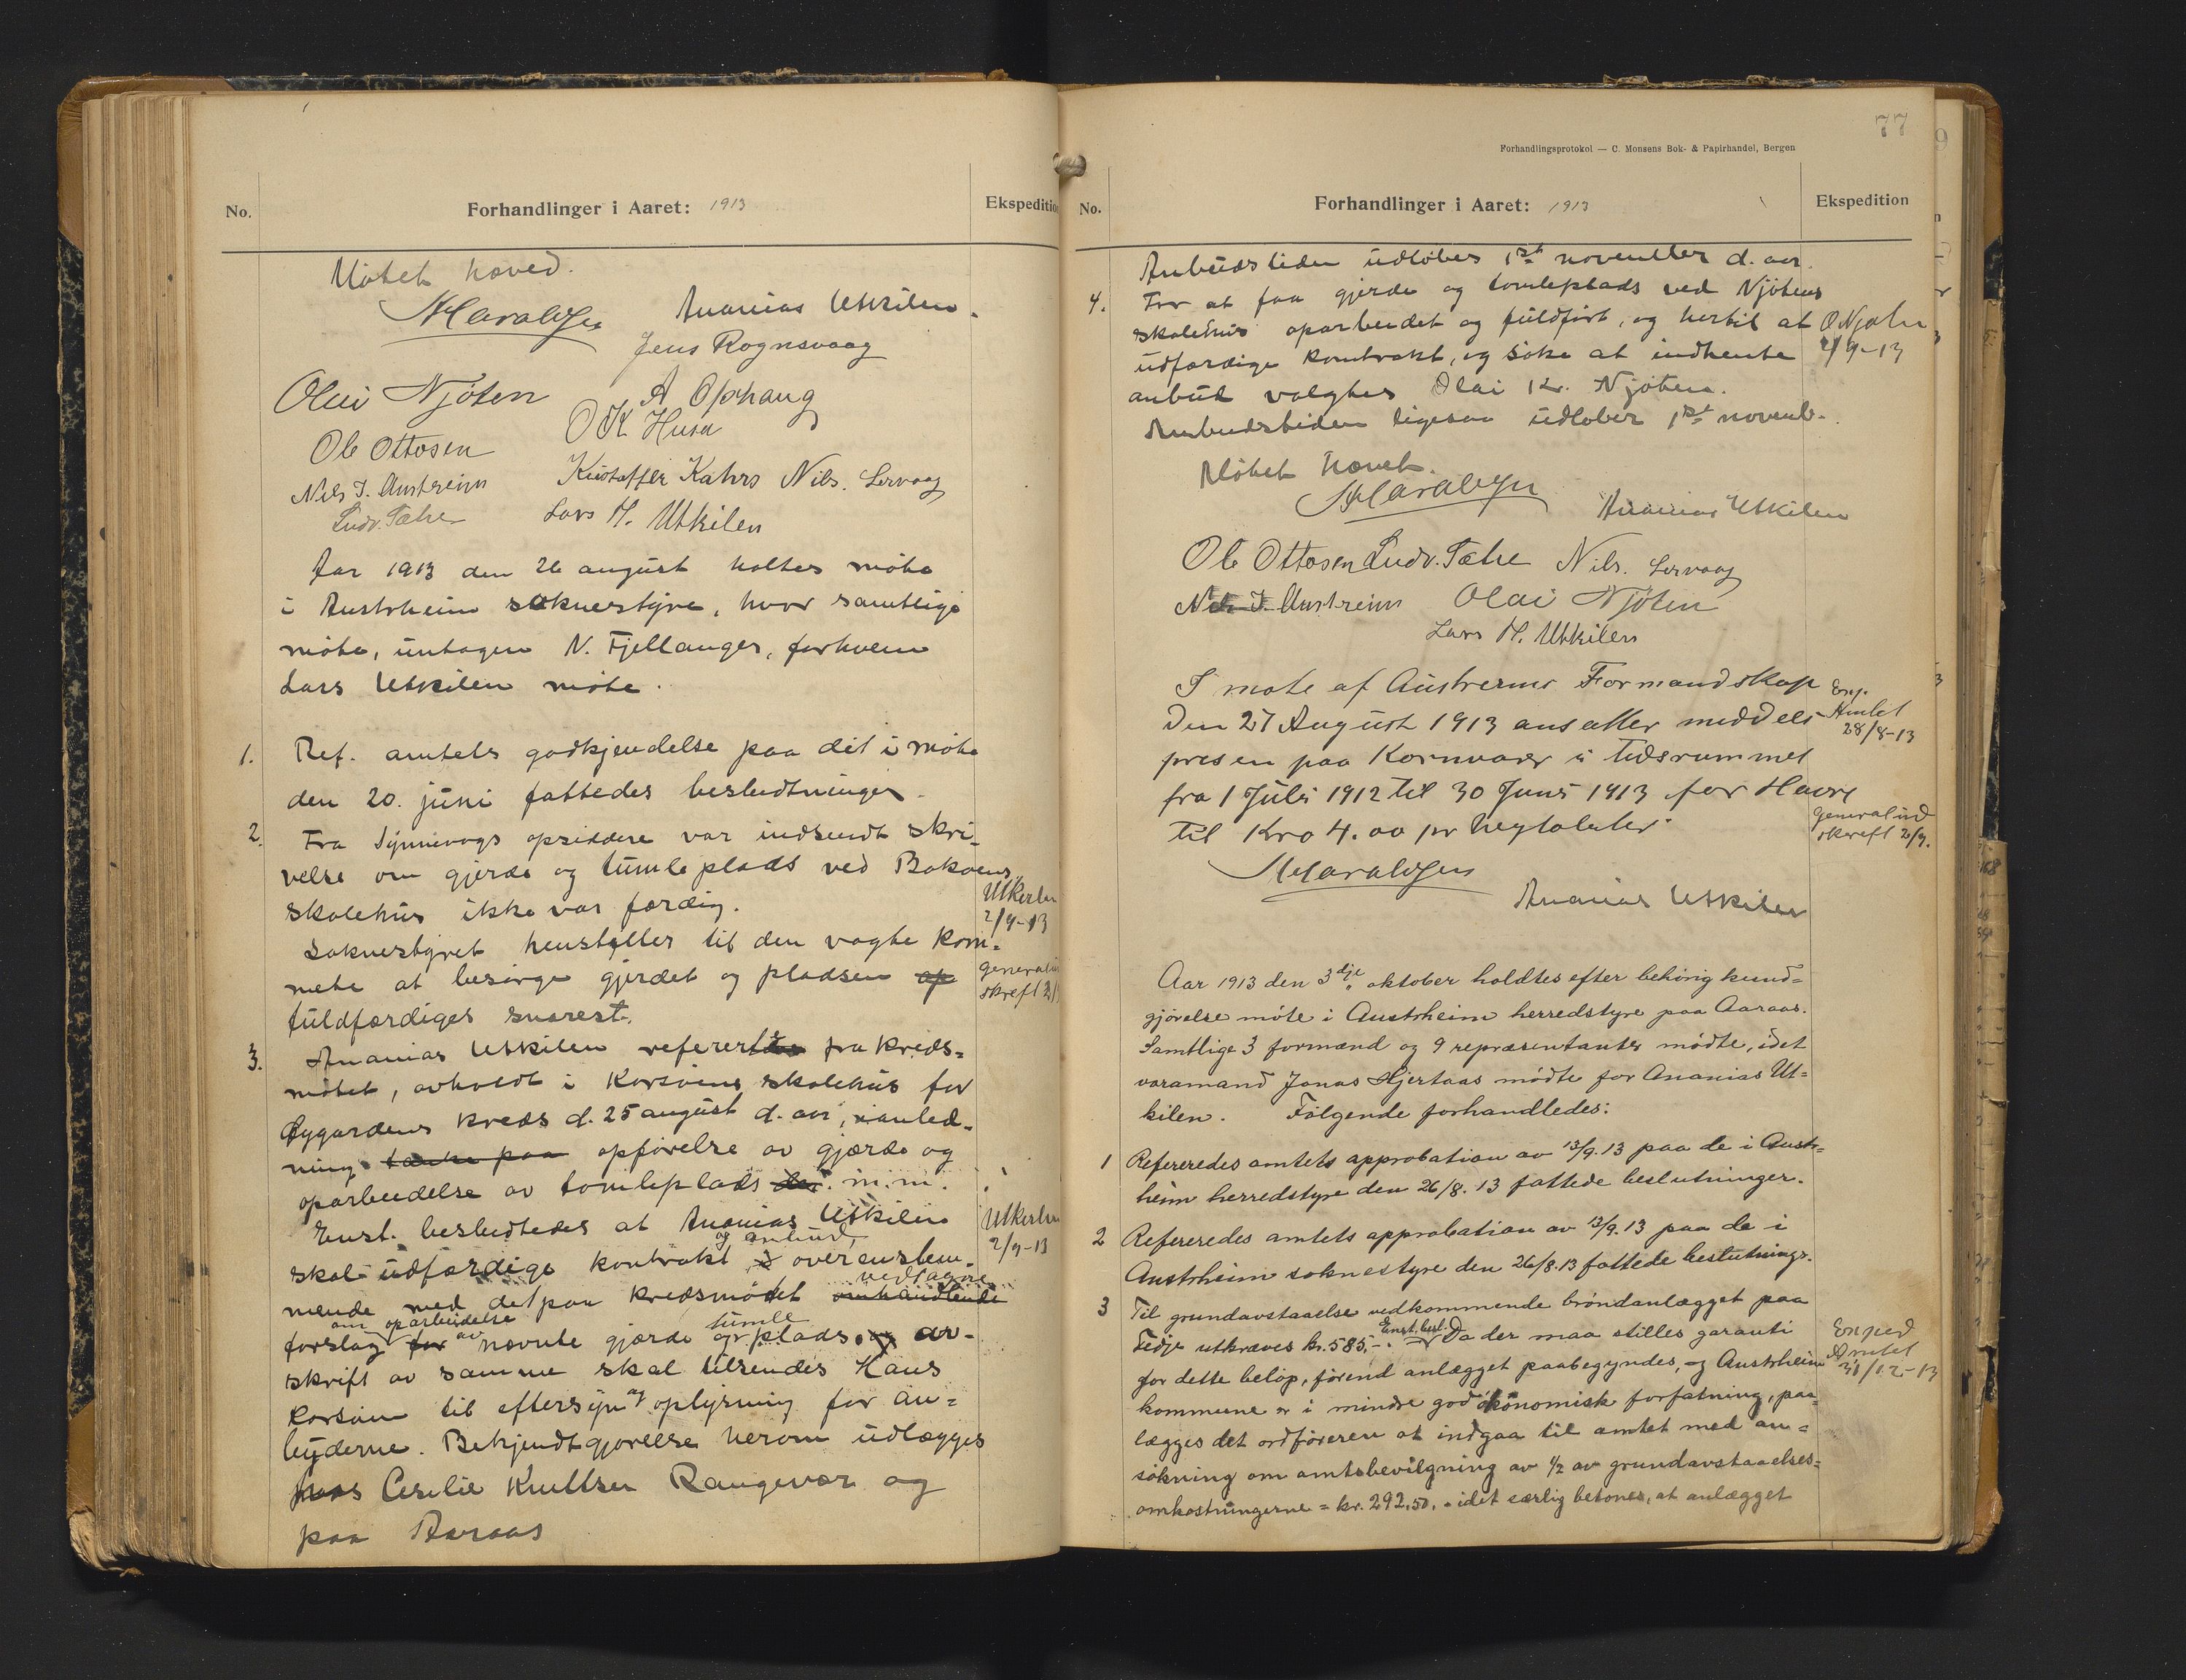 No.
Forhandlinger i Aaret: 1913
Ekspeditio
Møtet hæved.
AHaraldsen
Ananias Utkilen.
Jens Rognsvaag
Olai Njøten
A Ophaug
O K Husa
Ole Ottosen
Nils J. Austreim
Kristoffer Kahrs Nils. Lervaag
Ludv. Tæhre
Lars M. Utkilen
Aar 1913 den 26 august holtes møte
i Austrheim soknestyre, hvor samtlige
møte, untagen N. Fjellanger, forhvem
Lars Utkilen møte.
1. Ref. amtets godkjendelse paa det i møte
den 20. juni fattedes besludtninger.
2. Fra Synnevogs opsiddere var indsendt skri-
velse om gjerde og tumleplads ved Bakøens
skolehus ikke var færdig.
Utkilen
2/9-13
Soknestyret henstiller til den vagte kom-
mete at besørge gjerdet og pladsen op
generalud
skreft 2/
fuldfærdiges snarest.
3. Ananias Utkilen referertes fra kreds-
møtet, avholdt i Korsøens skolehus for
Øygardens kreds d. 25 august d. aar, ianled-
ning tænke paa opførelse av gjærde og
oparbeidelse av tomleplads der. m.m.
Enst. besludtedes at Ananias Utkilen
Utkilen
2/9-13
og anbud,
skal udfærdige kontrakt, i overenstem-
vedtagne
mende med det paa kredsmødet omhandlende
om oparbeidelse av tumle
forslag for nævnte gjærde og plads, og av-
skrift av samme skal tilsendes Hans
Korsøen til eftersyn og oplysning for an-
byderne. Bekjendtgjørelse herom udlægges
hos Cesilie Knudtsen Rangevær og
paa Aaraas
77
Forhandlingsprotokol — C. Monsens Bok- & Papirhandel, Bergen
No.
Forhandlinger i Aaret: 1913
Ekspedition
Anbudstiden udløbes 1st november d. aar.
4. For at faa gjerde og tomleplads ved Njøtens
skolehus oparbeidet og fuldført, og hertil at
O Njøten
2/9-13
udfærdige kontrakt, og søke at indhente
anbud valgtes Olai Kr. Njøten.
Anbudstiden ligesaa udløber 1st novemb.
Møtet hævet.
AHaraldsen
Ananias Utkilen
Ole Ottosen Ludv. Tæhre Nils. Lervaag
Nils J. Austreim Olai Njøten
Lars M. Utkilen
I møte af Austrems Formandskap
Exp.
Amtet
28/8-13
Den 27 August 1913 ansatter middels-
prisen paa Kornvarer i tidsrummet
fra 1 Juli 1912 til 30 Juni 1913 for Havre
til Kro 4.00 pr hegtoleter.
generalud
skreft 2/9.
AHaraldsen
Ananias Utkilen
Aar 1913 den 3dje oktober holdtes efter behørig kund-
gjørelse møte i Austrheim herredstyre paa Aaraas.
Samtlige 3 formænd og 9 repræsentanter mødte, idet
varamand Jonas Hjertaas mødte for Ananias Ut-
kilen. Følgende forhandledes:
1 Refereredes amtets approbation av 13/9.13 paa de i Austr-
heim herredstyre den 26/8.13 fattede beslutninger.
2 Refereredes amtets approbation av 13/9.13 paa de i
Austrheim soknestyre den 26/8.13 fattede beslutninger.
3 Til grundavstaaelse vedkommende brøndanlægget paa
Enst. besl.
Fedje utkræves kr. 585,-. Da der maa stilles garanti
Exped
Amtet
31/12-13
for dette beløp, førend anlægget paabegyndes, og Austrheim
kommune er i mindre god økonomisk forfatning, paa-
lægges det ordføreren at indgaa til amtet med an-
søkning om amtsbevilgning av 1/2 av grundavstaaelses-
omkostningerne = kr. 292,50, - idet særlig betones, at anlægget